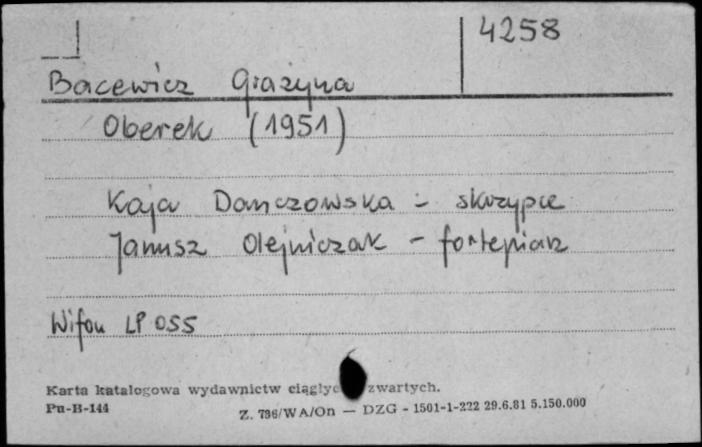 4258
Bacewicz Grażyna
Oberek (1951)
Kaja Danczowska - skrzypce
Janusz Olejniczak - fortepian
Wifon LP 055
Karta katalogowa wydawnictw ciągłyc zwartych.
Pu-B-144
Z. 796/WA/On — DZG - 1501-1-222 29.6.81 5.150.000